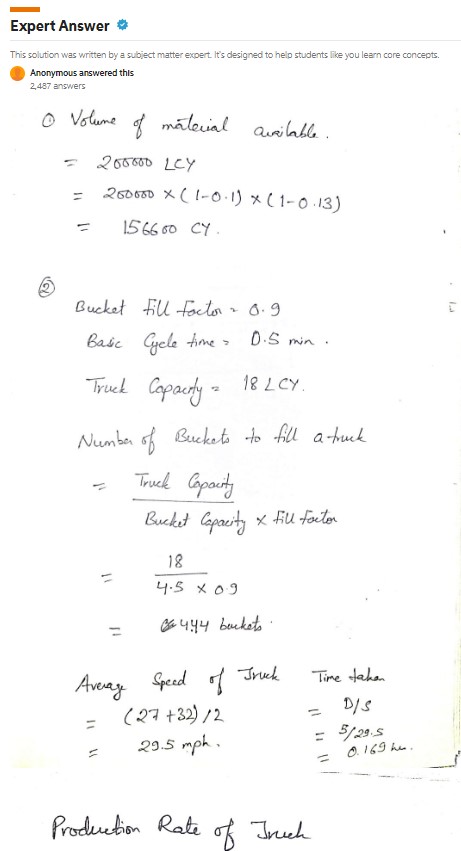 Expert Answer
This solution was written by a subject matter expert. It's designed to help students like you learn core concepts.
Anonymous answered this
2,487 answers
① Volume of material available.
= 200000 LCY
= 200000 × (1-0.1) × (1-0.13)
= 156600 CY.
②
Bucket fill factor = 0.9
Basic Cycle time = 0.5 min.
Truck Capacity = 18 LCY.
Number of Buckets to fill a truck
= Truck Capacity
Bucket Capacity × fill factor
= 18
4.5 × 0.9
= 4.44 buckets.
Average Speed of Truck
= (27+32)/2
= 29.5 mph.
Time taken
= D/S
= 5/29.5
= 0.169 hr.
Production Rate of Truck